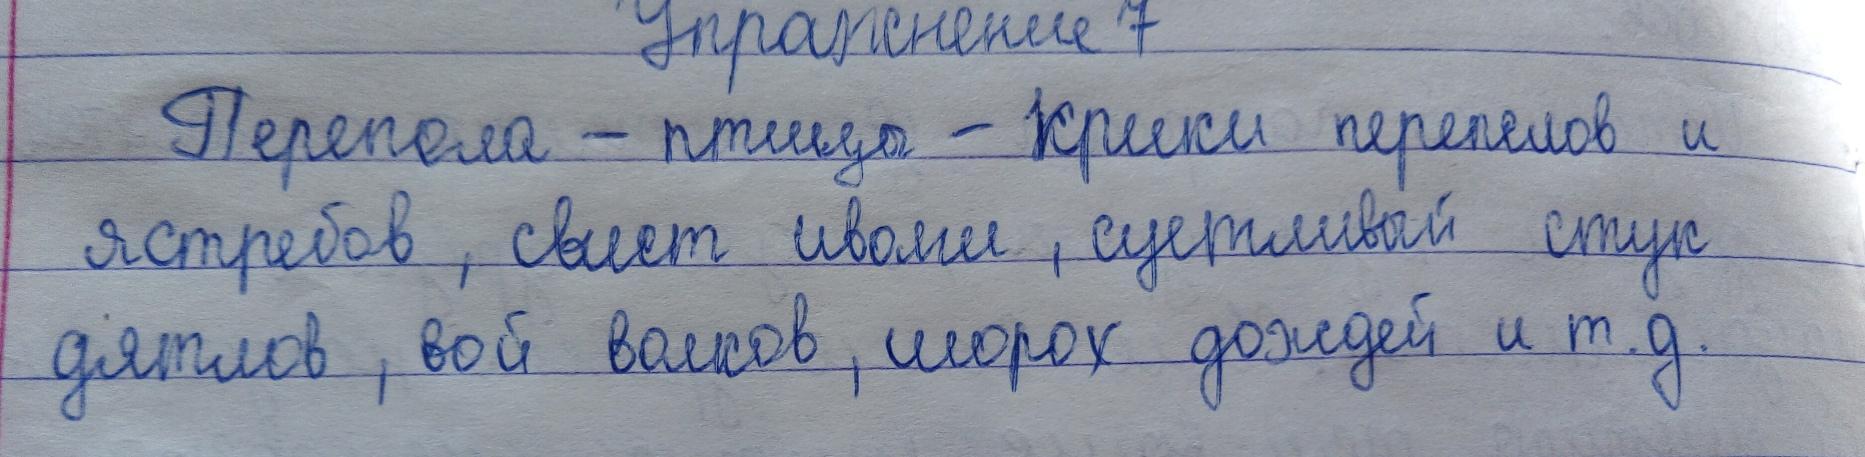 Упражнение 7
Перепела – птицы – крики перепелов и
ястребов, свист иволги, суетливый стук
дятлов, вой волков, шорох дождей и т.д.